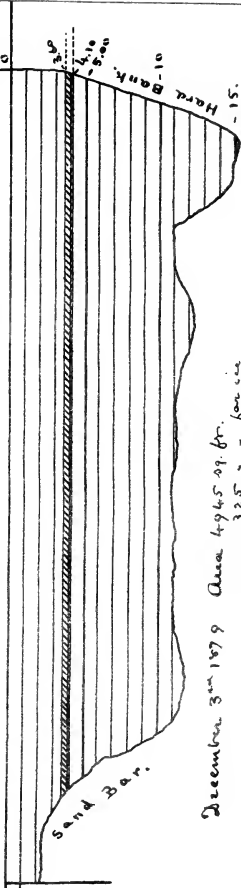 0
3.60
4.10
-5.00
-10
-15.
Hard Bank.
Sand Bar.
December 3rd 1879 Area 4945 sq. ft.
325 " "